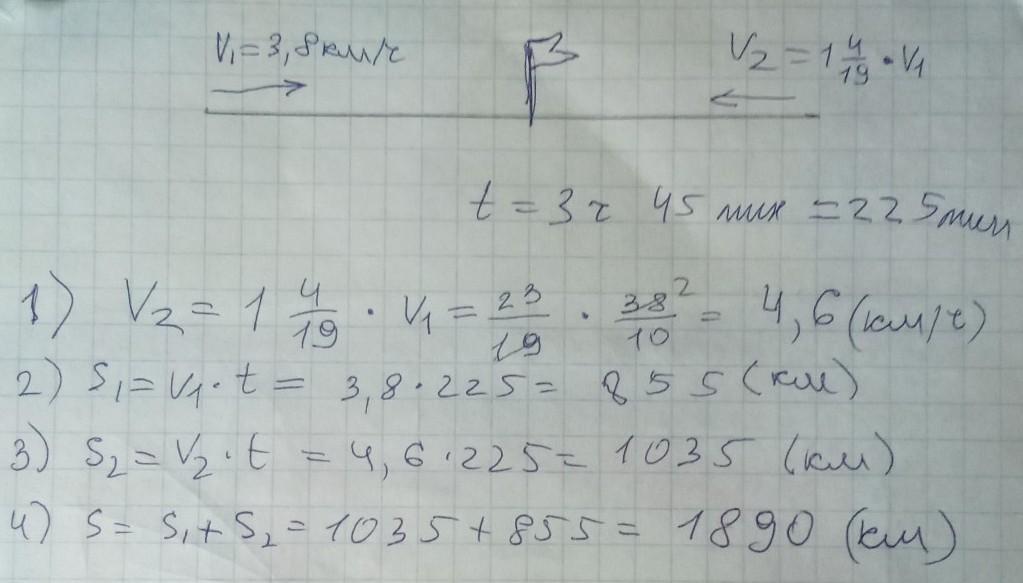 V₁ = 3,8 км/ч
V₂ = 1 4/19 · V₁
t = 3 ч 45 мин = 225 мин
1) V₂ = 1 4/19 · V₁ = 23/19 · 38²/10 = 4,6 (км/ч)
2) S₁ = V₁ · t = 3,8 · 225 = 855 (км)
3) S₂ = V₂ · t = 4,6 · 225 = 1035 (км)
4) S = S₁ + S₂ = 1035 + 855 = 1890 (км)